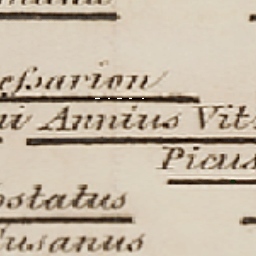 eſsarion
ni Annius Vit
Picus
ostatus
usanus